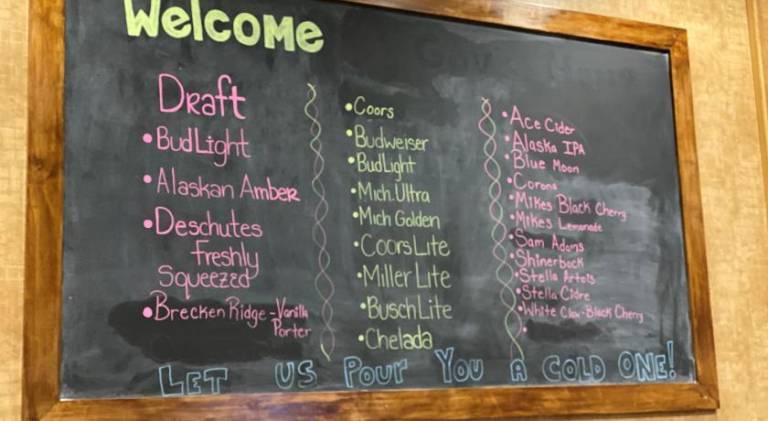 Welcome
Draft
•BudLight
•Alaskan Amber
•Deschutes
Freshly
Squeezed
•Brecken Ridge-Vanilla
Porter
•Coors
•Budweiser
•BudLight
•Mich.Ultra
•Mich Golden
•Coors Lite
•Miller Lite
•Busch Lite
•Chelada
•Ace Cider
•Alaska IPA
•Blue Moon
•Corona
•Mikes Black Cherry
•Mikes Lemonade
•Sam Adams
•Shinerbock
•Stella Artois
•Stella Cidre
•White Claw-Black Cherry
•
LET US POUr YOU A COLD ONE!